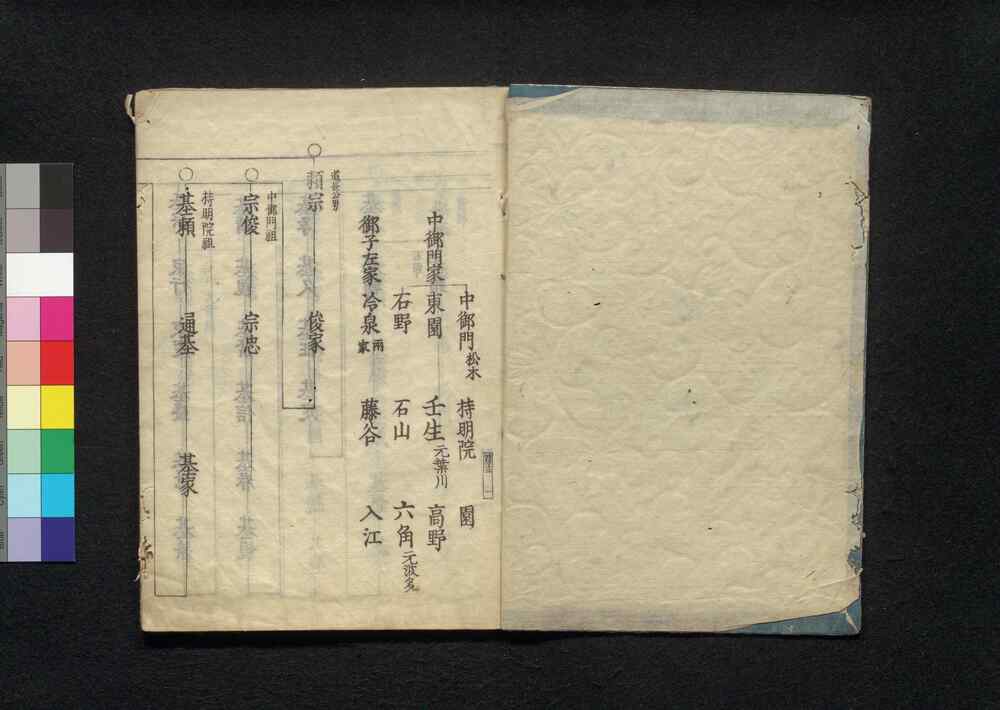 中御門松木 持明院 園
中御門家 東園 壬生元葉川 高野
石野 石山 六角元波多
御子左家 冷泉両家 藤谷 入江
道長公男
頼宗 俊家
中御門祖
宗俊 宗忠
持明院祖
基頼 通基 基家